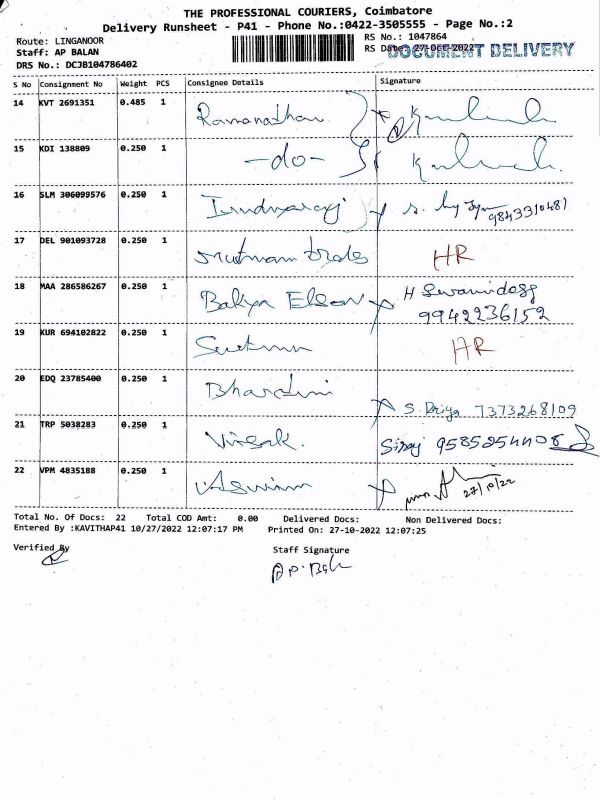 THE PROFESSIONAL COURIERS, Coimbatore
Delivery Runsheet - P41 - Phone No.:0422-3505555 - Page No.:2
Route: LINGANOOR
Staff: AP BALAN
DRS No.: DCJB104786402
RS No.: 1047864
RS Date: 27-Oct-2022
DOCUMENT DELIVERY
S No Consignment No Weight PCS Consignee Details Signature
14 KVT 2691351 0.485 1 Ramanathan
15 KDI 138809 0.250 1 -do-
16 SLM 306099576 0.250 1 9843310481
17 DEL 901093728 0.250 1 HR
18 MAA 286586267 0.250 1 Bakya H
9942236152
19 KUR 694102822 0.250 1 HR
20 EDQ 23785400 0.250 1 S. Priya 7373268109
21 TRP 5038283 0.250 1 Siraj 9585254408
22 VPM 4835188 0.250 1 Aswin 27/10/22
Total No. Of Docs: 22 Total COD Amt: 0.00 Delivered Docs: Non Delivered Docs:
Entered By :KAVITHAP41 10/27/2022 12:07:17 PM Printed On: 27-10-2022 12:07:25
Verified By Staff Signature